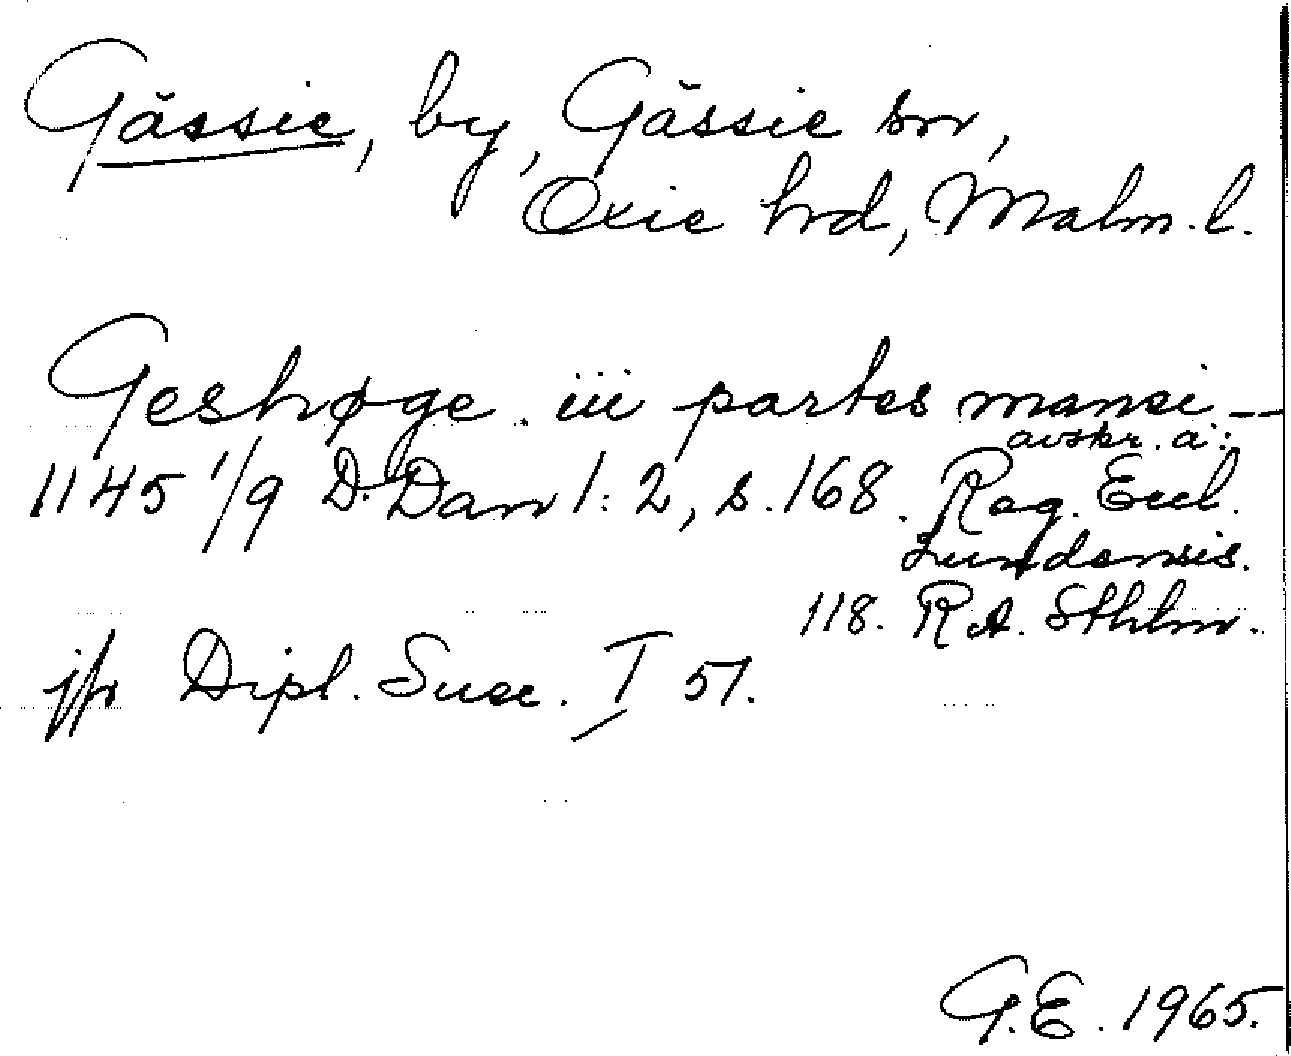 Gässie, by, Gässie sn,
Oxie hrd, Malm. l.
Geshøge. iii partes mansi --
avskr. a:
1145 1/9 D. Dan 1: 2, s. 168. Reg. Eccl.
Lundensis.
118. RA. Sthlm.
jfr Dipl. Suec. I 51.
G.E. 1965.